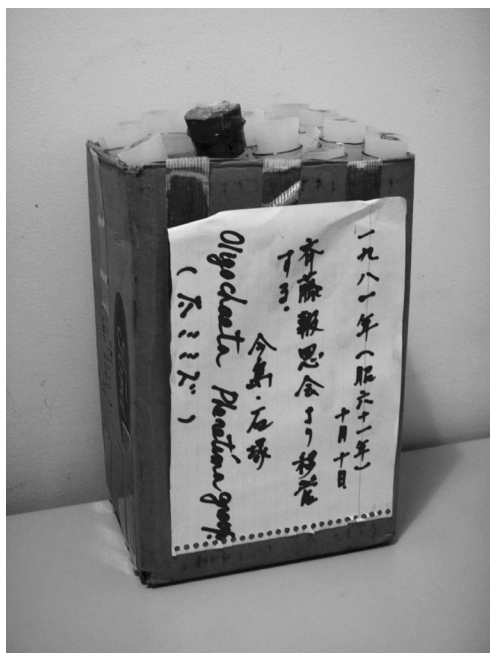 一九八一年(昭六十一年)
十月十日
斉藤報恩会より移管
する.
今島・石塚
Oligochaeta Pheretima group.
(ホミミズ)